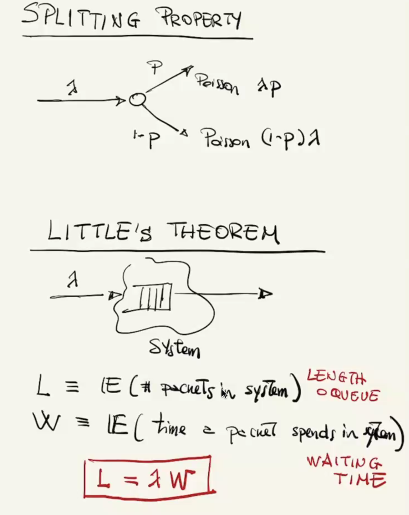 SPLITTING PROPERTY
λ
P
Poisson λp
1-P
Poisson (1-p)λ
LITTLE'S THEOREM
λ
System
L ≡ IE (# packets in system) LENGTH
O QUEUE
W ≡ IE ( time a packet spends in system)
WAITING
TIME
L = λ W